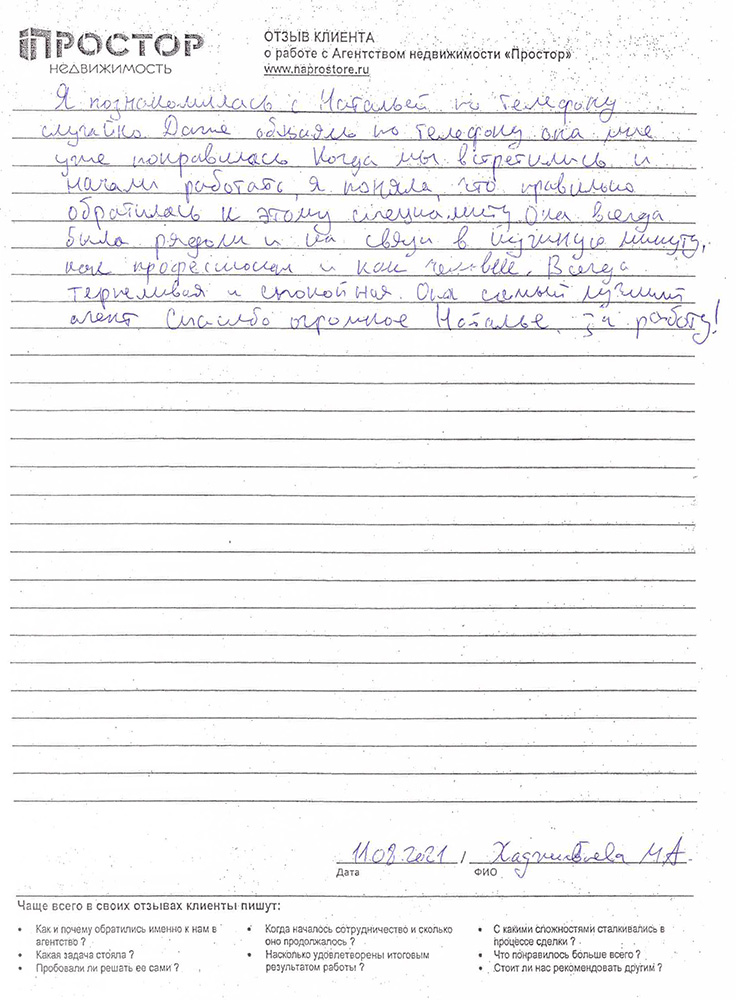 ПРОСТОР
НЕДВИЖИМОСТЬ
ОТЗЫВ КЛИЕНТА
о работе с Агентством недвижимости «Простор»
www.naprostore.ru
Я познакомилась с Натальей по телефону
случайно. Даже общаясь по телефону она мне
уже понравилась. Когда мы встретились и
начали работать, я поняла, что правильно
обратилась к этому специалисту. Она всегда
была рядом и на связи в нужную минуту,
как профессионал и как человек. Всегда
терпеливая и спокойная. Она самый лучший
агент. Спасибо огромное Наталье за работу!
11.08.2021 /
Дата ФИО
М А
Чаще всего в своих отзывах клиенты пишут:
• Как и почему обратились именно к нам в
агентство ?
• Какая задача стояла ?
• Пробовали ли решать ее сами ?
• Когда началось сотрудничество и сколько
оно продолжалось ?
• Насколько удовлетворены итоговым
результатом работы ?
• С какими сложностями сталкивались в
процессе сделки ?
• Что понравилось больше всего ?
• Стоит ли нас рекомендовать другим ?